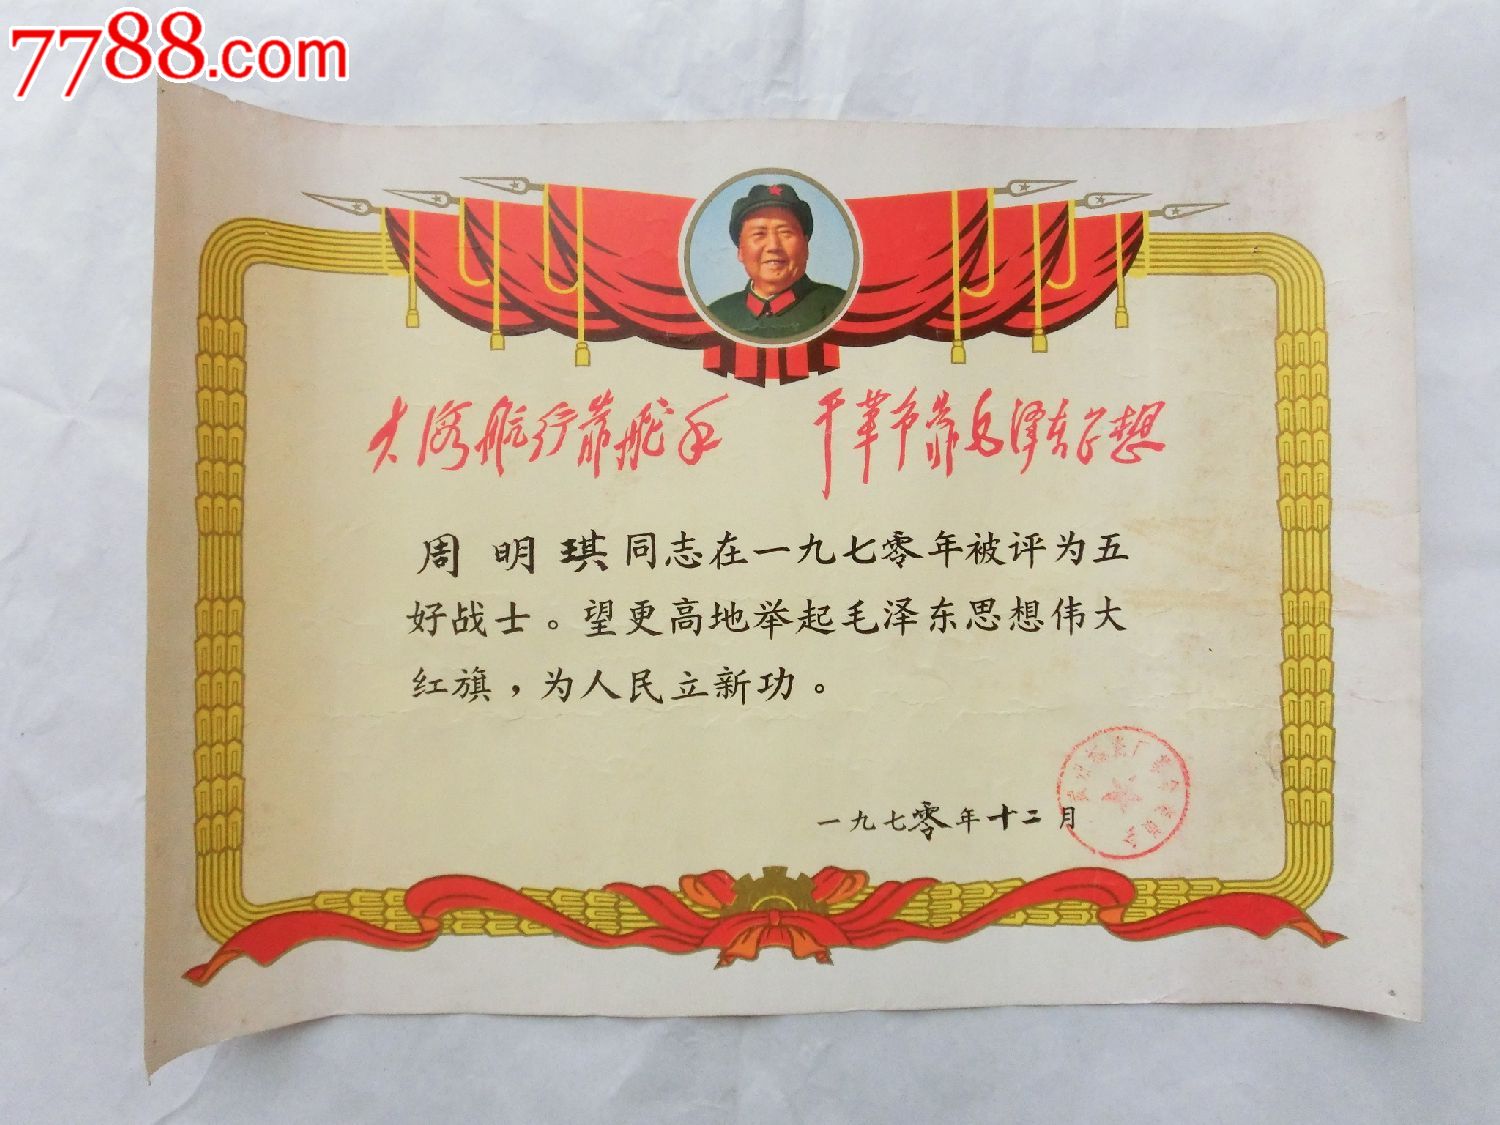 7788.com
大海航行靠舵手 干革命靠毛泽东思想
周明琪同志在一九七零年被评为五
好战士。望更高地举起毛泽东思想伟大
红旗，为人民立新功。
一九七零年十二月